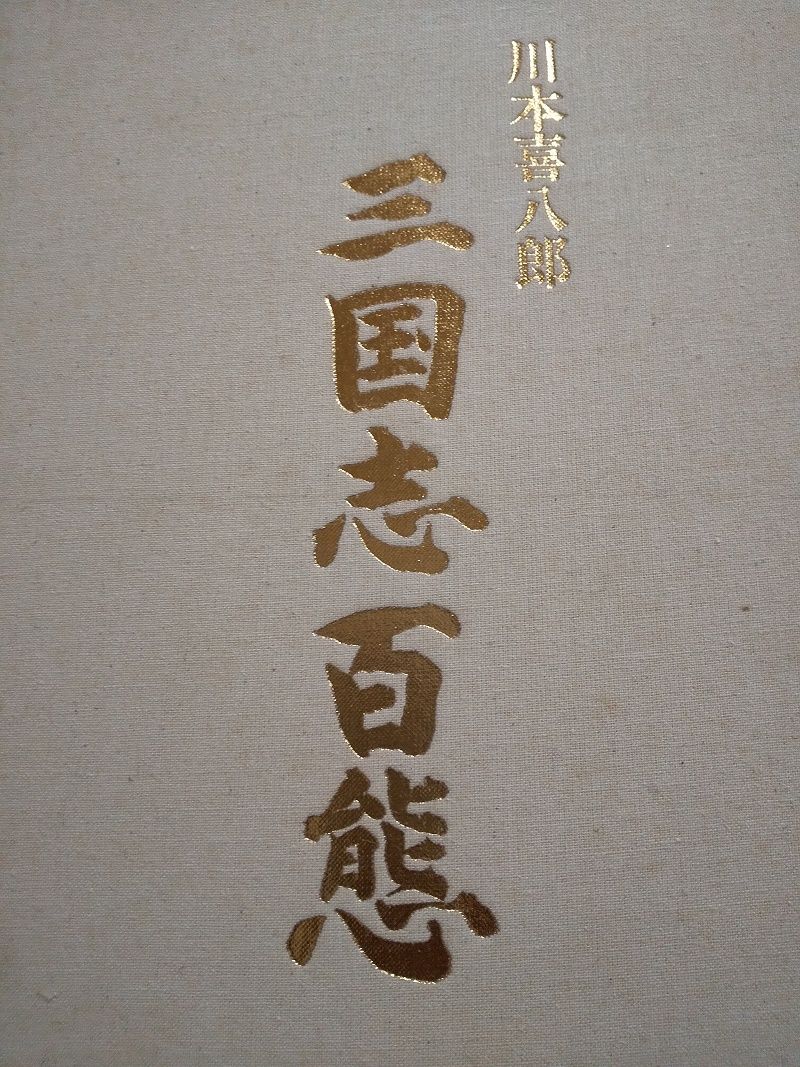 川本喜八郎
三国志百態